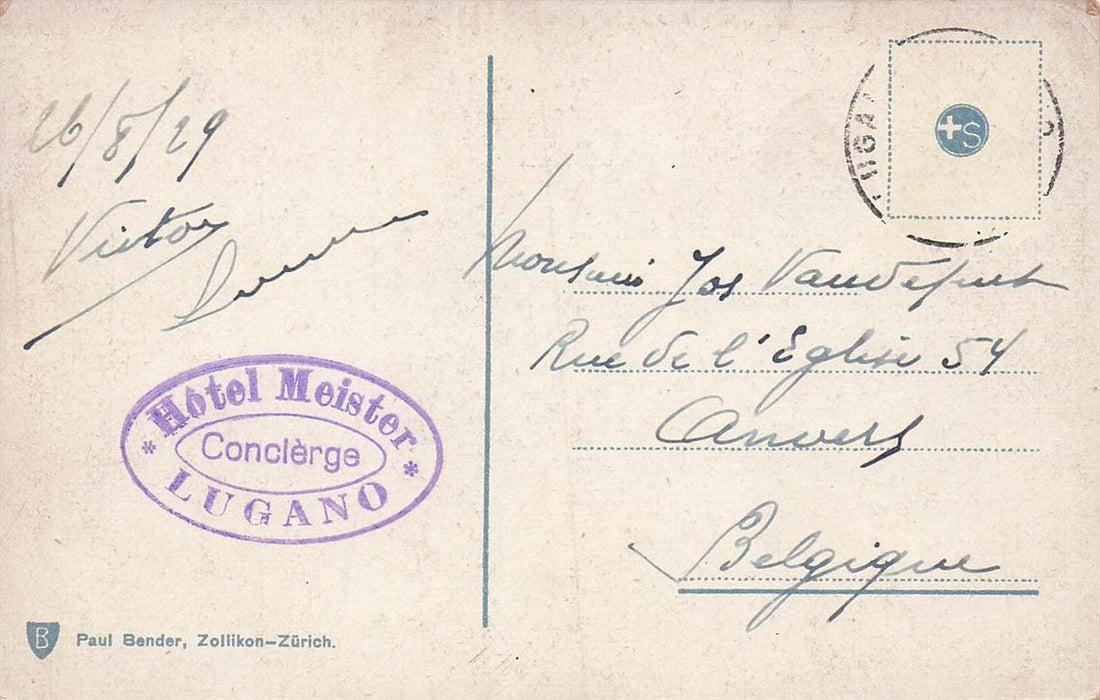 26/8/29
Victor
Hôtel Meister
Concièrge
LUGANO
Paul Bender, Zollikon-Zürich.
B
+S
UGA
Monsieur Jos Vandeput
Rue de l'Eglise 54
Anvers
Belgique